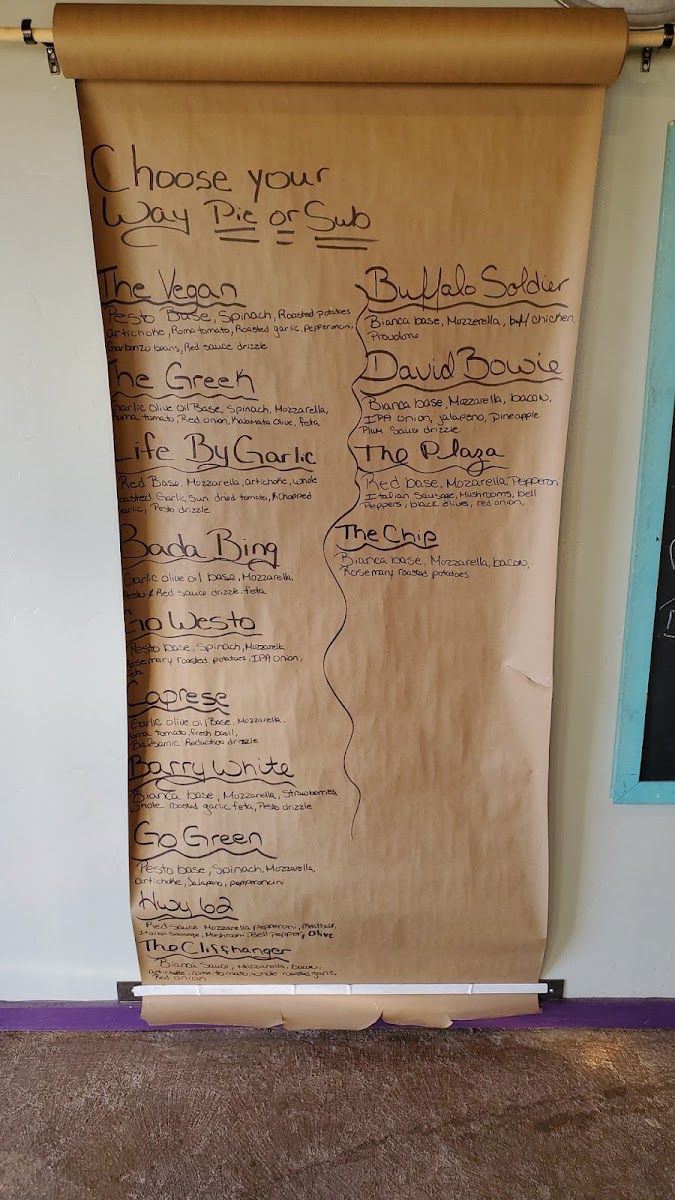 Choose your
Way Pie or Sub
The Vegan
Pesto Base, Spinach, Roasted potatoes
artichoke, Roma tomato, Roasted garlic, pepperoncini,
Garbonzo beans, Red sauce drizzle
The Greek
Garlic olive oil Base, Spinach, Mozzarella,
Roma tomato, Red onion, Kalamata olive, feta
Life By Garlic
Red Base, Mozzarella, artichoke, whole
roasted Garlic, Sun dried tomato, & Chopped
garlic, Pesto drizzle
Bada Bing
Garlic olive oil base, Mozzarella,
Pesto & Red sauce drizzle, feta
Go Westo
Pesto base, Spinach, Mozzarella
Rosemary roasted potatoes, IPA onion,
feta
Caprese
Garlic olive oil Base, Mozzarella,
Roma tomato, fresh basil,
Balsamic Reduction drizzle
Barry White
Bianca base, Mozzarella, Strawberries,
whole roasted garlic, feta, Pesto drizzle
Go Green
Pesto base, Spinach, Mozzarella,
artichoke, Jalapeno, pepperoncini
Hwy 62
Red Sauce Mozzarella Pepperoni, meatball,
Italian Sausage, Mushroom, Bell pepper, Olive
The Cliffhanger
Bianca Sauce, Mozzarella, bacon,
artichoke, roma tomato, whole roasted garlic,
Red onion
Buffalo Soldier
Bianca base, Mozzerella, buff chicken,
Provolone
David Bowie
Bianca base, Mozzarella, bacon,
IPA onion, jalapeno, pineapple
Plum Sauce drizzle
The Plaza
Red base, Mozarella, Pepperoni
Italian Sausage, Mushrooms, bell
Peppers, black olives, red onion,
The Chip
Bianca base, Mozzarella, bacon,
Rosemary roasted potatoes